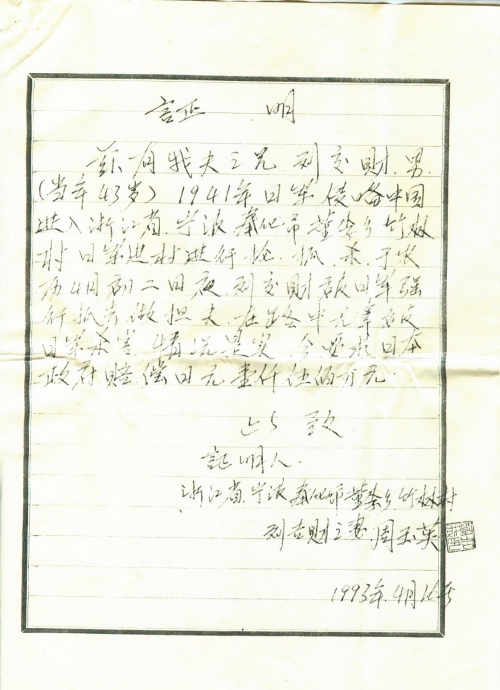 証 明
兹有我夫之兄 刘交财.男.
(当年43岁) 1941年日军侵略中国
进入浙江省.宁波奉化市董家乡竹林
村 日军进村进行抢.抓.杀.于农
历4月初二日夜.刘交财被日军强
行抓去做担夫.在路中无辜被
日军杀害.情况是实.今要求日本
政府赔偿日元壹仟伍佰万元.
此 致
証明人.
浙江省.宁波奉化市董家乡竹林村
刘古财之妻 周玉英
1993年.4月16号